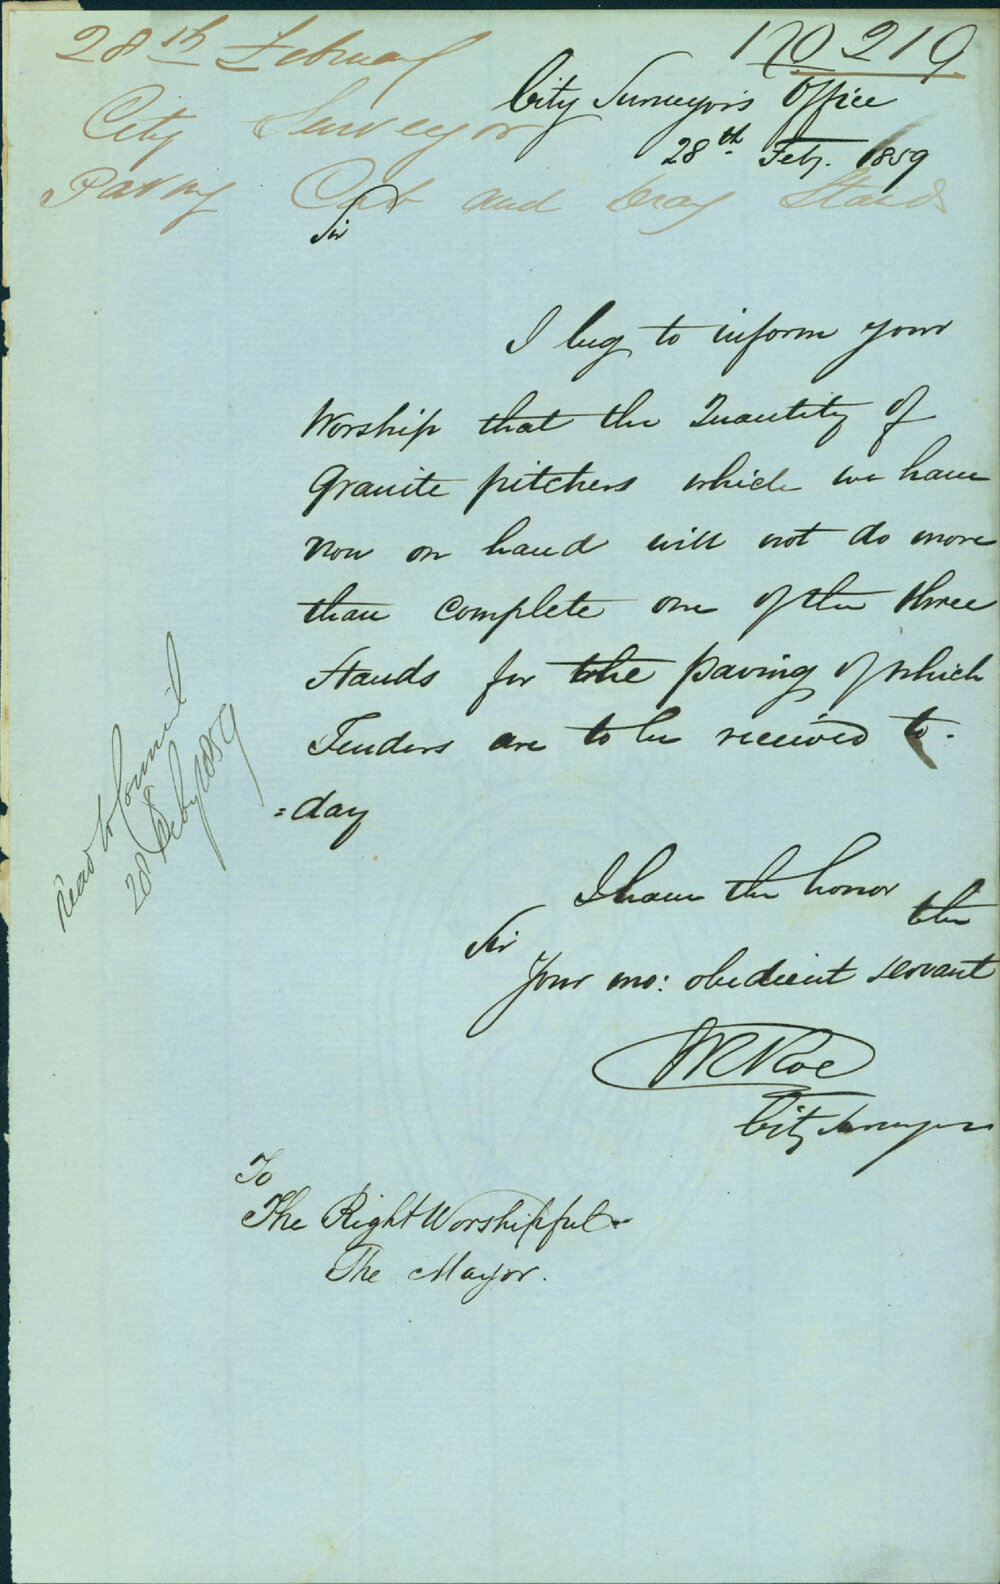 28th February
No 219
City Surveyor
City Surveyor's Office
28th Feby. 1859
Paving Cab and Dray Stands
Sir
I beg to inform your
Worship that the Quantity of
Granite pitchers which we have
now on hand will not do more
than complete one of the three
Stands for the paving of which
Tenders are to be received to-
=day
I have the honor
the
Sir
Your mo: obedient servant
City Surveyor
To
The Right Worshipful
The Mayor.
Read to Council
28 Feby 1859